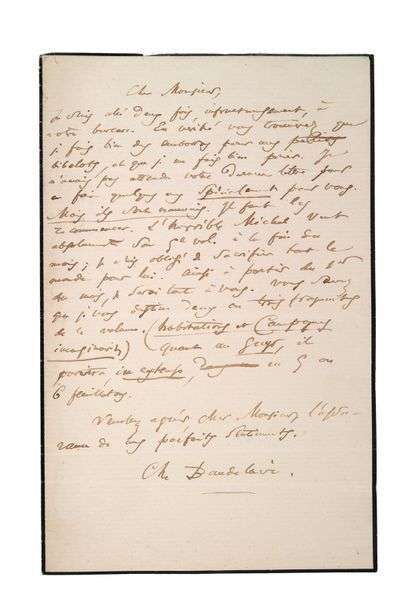 Cher Monsieur,
Je suis allé deux fois, infructueusement, à
votre bureau. En vérité vous trouverez que
je fais bien des embarras pour mes
bibelots, et que je me fais bien prier. Je
n'avais pas attendu votre dernière lettre pour
en faire quelques uns spécialement pour vous.
Mais ils sont mauvais. Il faut les
recommencer. L'horrible Michel veut
absolument son 5e vol. à la fin du
mois; je suis obligé de sacrifier tout le
monde pour lui. Ainsi à partir du 1er
du mois, je serai tout à vous. Vous savez
que je vous donne deux ou trois fragments
de ce volume. (habitations et Campagnes
imaginaires) Quant au Guys, il
paraîtra in extenso, en 5 ou
6 feuilletons.
Veuillez agréer, cher Monsieur, l'assu-
rance de mes parfaits sentiments.
Ch. Baudelaire.